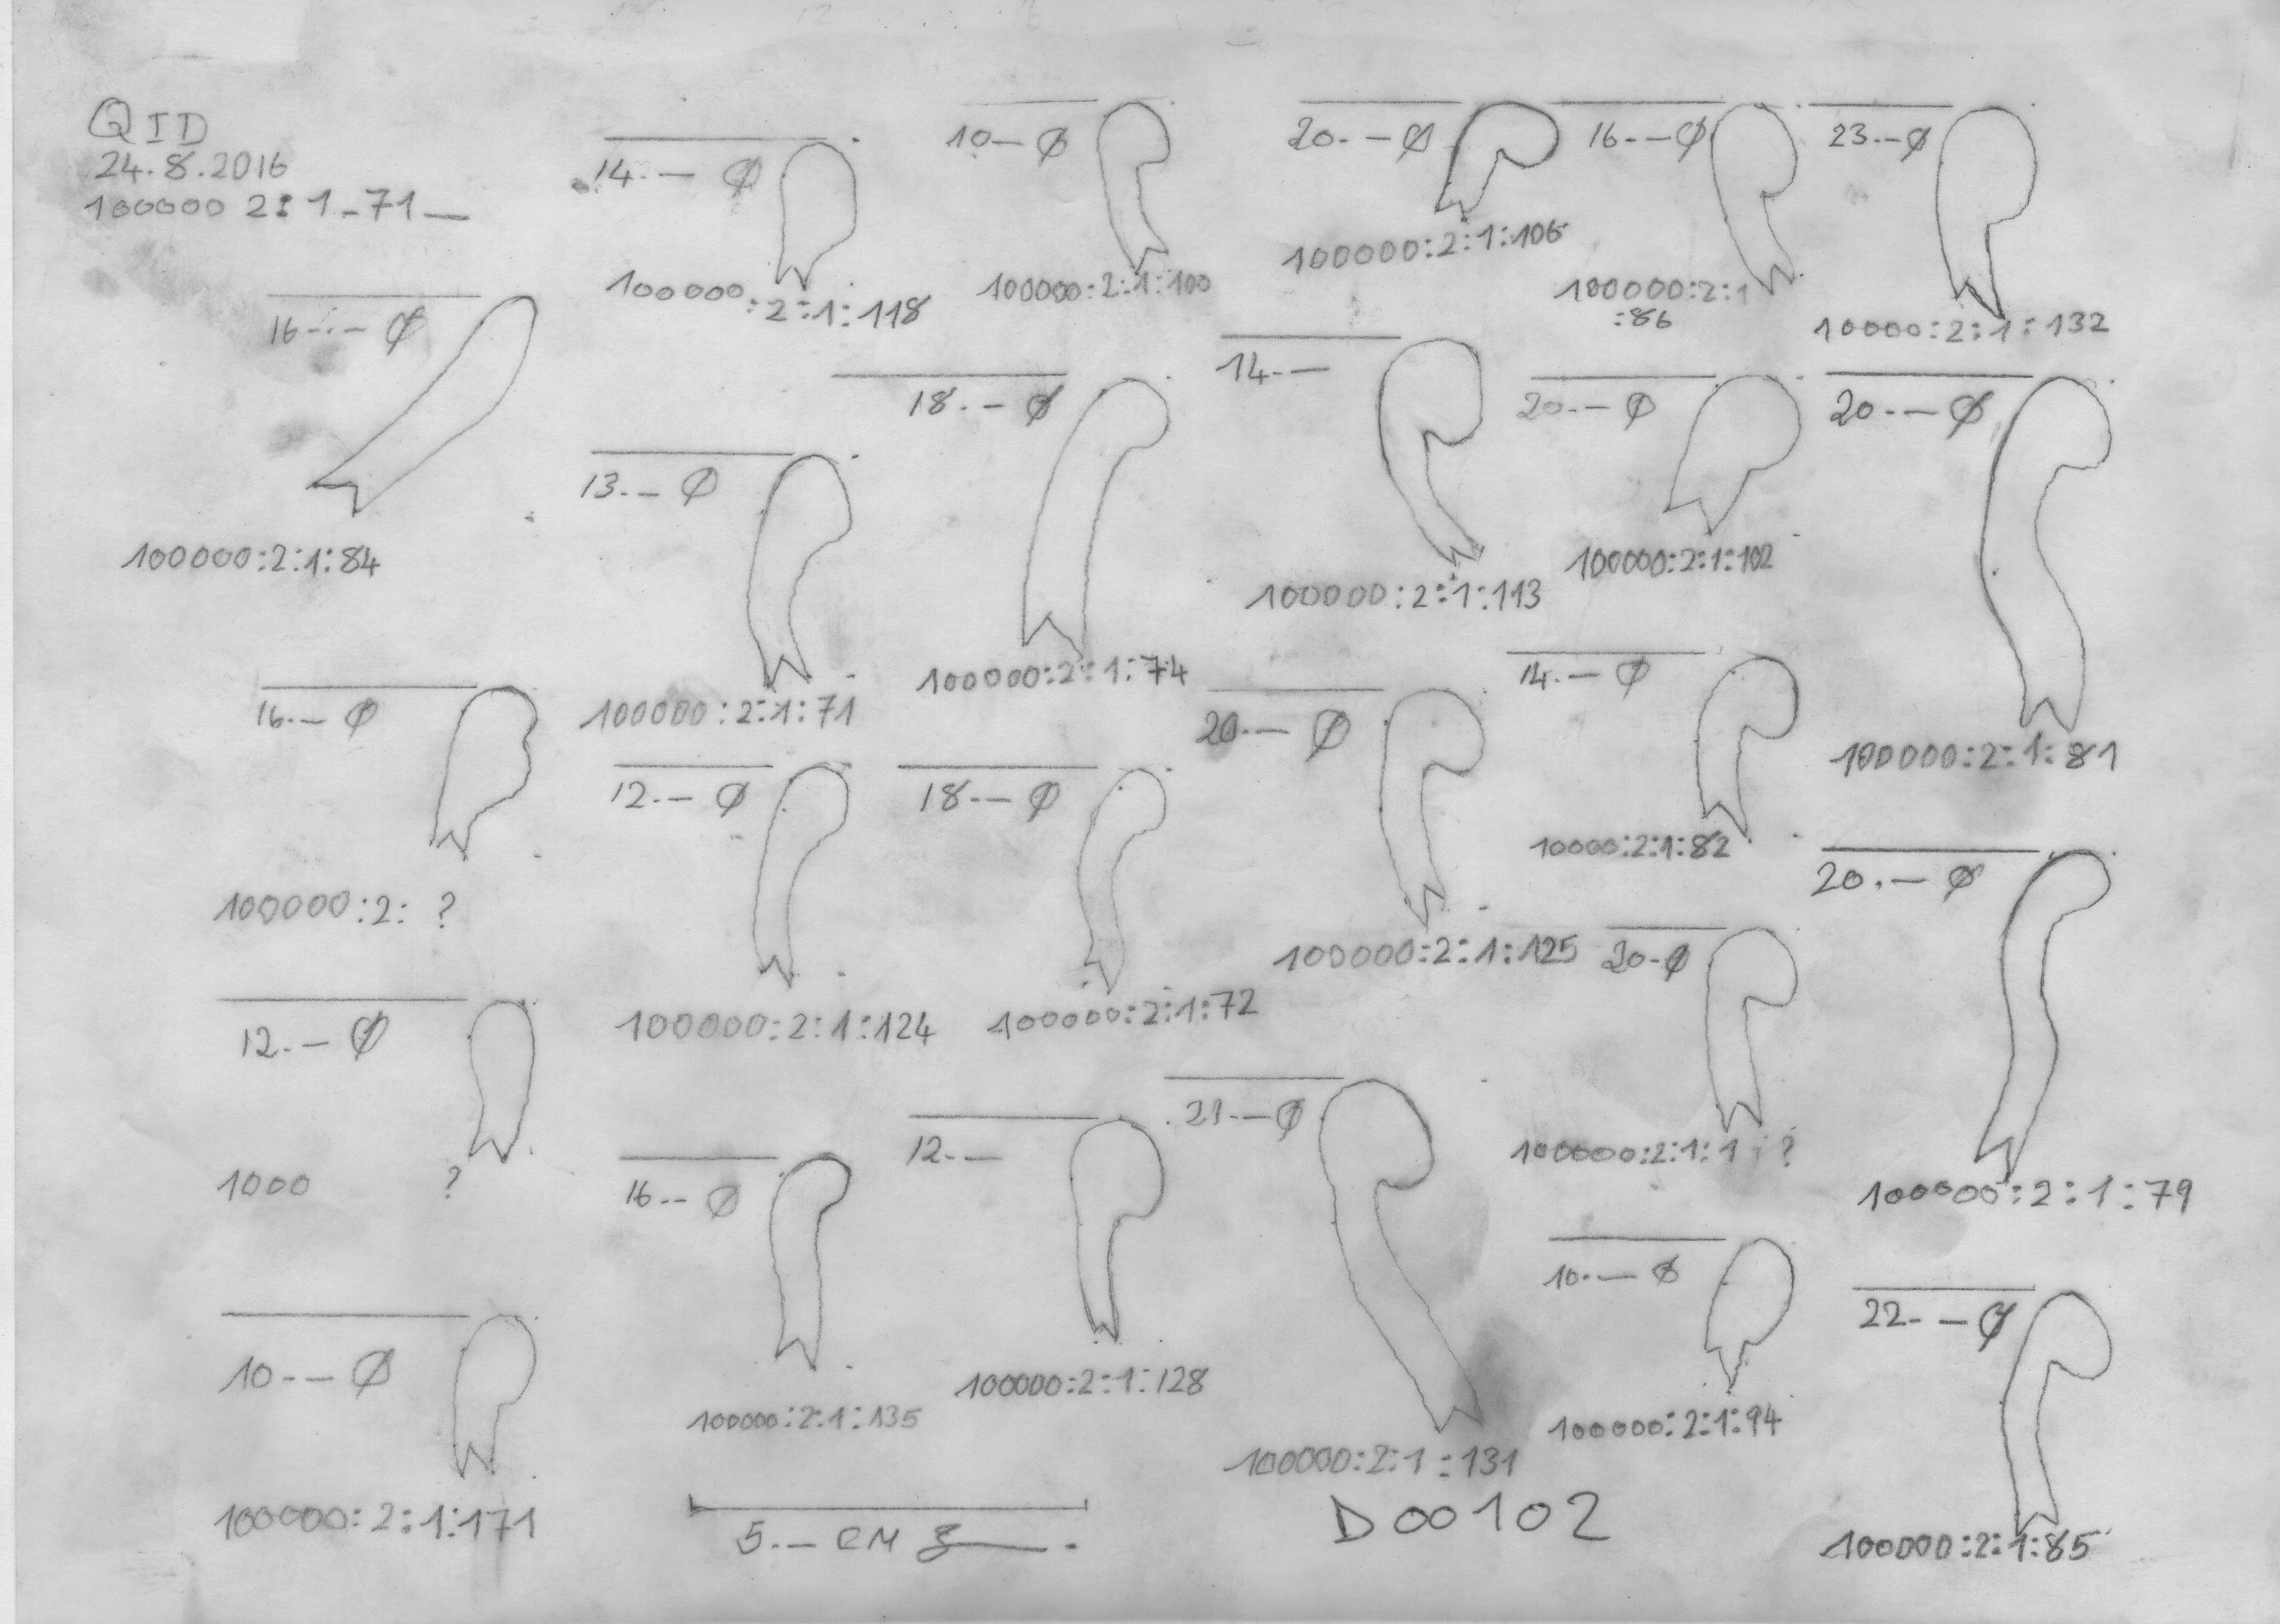 QID
24.8.2016
100000 2:1-71—
16.-.— Ø
100000:2:1:84
16.— Ø
100000:2: ?
12.— Ø
1000 ?
10-— Ø
100000:2:1:171
14.— Ø
100000:2:1:118
13.— Ø
100000:2:1:71
12.— Ø
100000:2:1:124
16.-- Ø
100000:2:1:135
5.— CM
10— Ø
100000:2:1:100
18.— Ø
100000:2:1:74
18-— Ø
100000:2:1:72
12.—
100000:2:1:128
20.—Ø
100000:2:1:106
14.—
100000:2:1:113
20.— Ø
100000:2:1:125
21.—Ø
100000:2:1:131
D00102
16.-—Ø
100000:2:1
:86
20.—Ø
100000:2:1:102
14.— Ø
10000:2:1:82
20-Ø
100000:2:1:1 ?
10.— Ø
100000:2:1:94
23.—Ø
10000:2:1:132
20.—Ø
100000:2:1:81
20.— Ø
100000:2:1:79
22.—Ø
100000:2:1:85